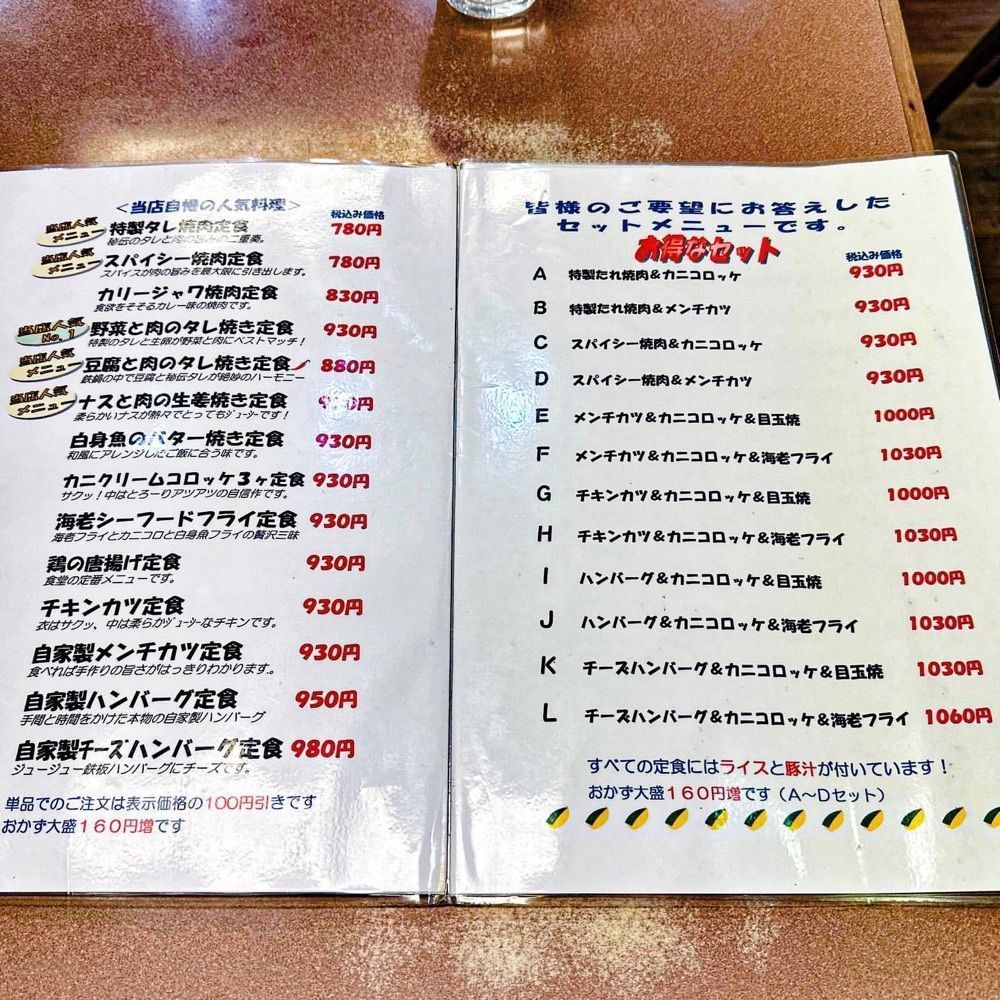 ＜当店自慢の人気料理＞
税込み価格
当店人気
メニュー
特製タレ焼肉定食 780円
秘伝のタレと肉の旨みの二重奏。
当店人気
メニュー
スパイシー焼肉定食 780円
スパイスが肉の旨みを最大限に引き出します。
カリージャワ焼肉定食 830円
食欲をそそるカレー味の焼肉です。
当店人気
No.1
野菜と肉のタレ焼き定食 930円
特製のタレと生卵が野菜と肉にベストマッチ！
当店人気
メニュー
豆腐と肉のタレ焼き定食 880円
鉄鍋の中で豆腐と秘伝タレが絶妙のハーモニー
当店人気
メニュー
ナスと肉の生姜焼き定食
柔らかいナスが熱々でとってもｼﾞｭｰｼｰです！
白身魚のバター焼き定食 930円
和風にアレンジしたご飯に合う味です。
カニクリームコロッケ３ヶ定食 930円
サクッ！中はとろーりアツアツの自信作です。
海老シーフードフライ定食 930円
海老フライとカニコロと白身魚フライの贅沢三味
鶏の唐揚げ定食 930円
食堂の定番メニューです。
チキンカツ定食 930円
衣はサクッ、中は柔らかｼﾞｭｰｼｰなチキンです。
自家製メンチカツ定食 930円
食べれば手作りの旨さがはっきりわかります。
自家製ハンバーグ定食 950円
手間と時間をかけた本物の自家製ハンバーグ
自家製ﾁｰｽﾞハンバーグ定食 980円
ジュージュー鉄板ハンバーグにチーズです。
単品でのご注文は表示価格の100円引きです
おかず大盛１６０円増です
皆様のご要望にお答えした
セットメニューです。
お得なセット
税込み価格
A 特製たれ焼肉＆カニコロッケ 930円
B 特製たれ焼肉＆メンチカツ 930円
C スパイシー焼肉＆カニコロッケ 930円
D スパイシー焼肉＆メンチカツ 930円
E メンチカツ＆カニコロッケ＆目玉焼 1000円
F メンチカツ＆カニコロッケ＆海老フライ 1030円
G チキンカツ＆カニコロッケ＆目玉焼 1000円
H チキンカツ＆カニコロッケ＆海老フライ 1030円
I ハンバーグ＆カニコロッケ＆目玉焼 1000円
J ハンバーグ＆カニコロッケ＆海老フライ 1030円
K チーズハンバーグ＆カニコロッケ＆目玉焼 1030円
L チーズハンバーグ＆カニコロッケ＆海老フライ 1060円
すべての定食にはライスと豚汁が付いています！
おかず大盛１６０円増です（A～Dセット）